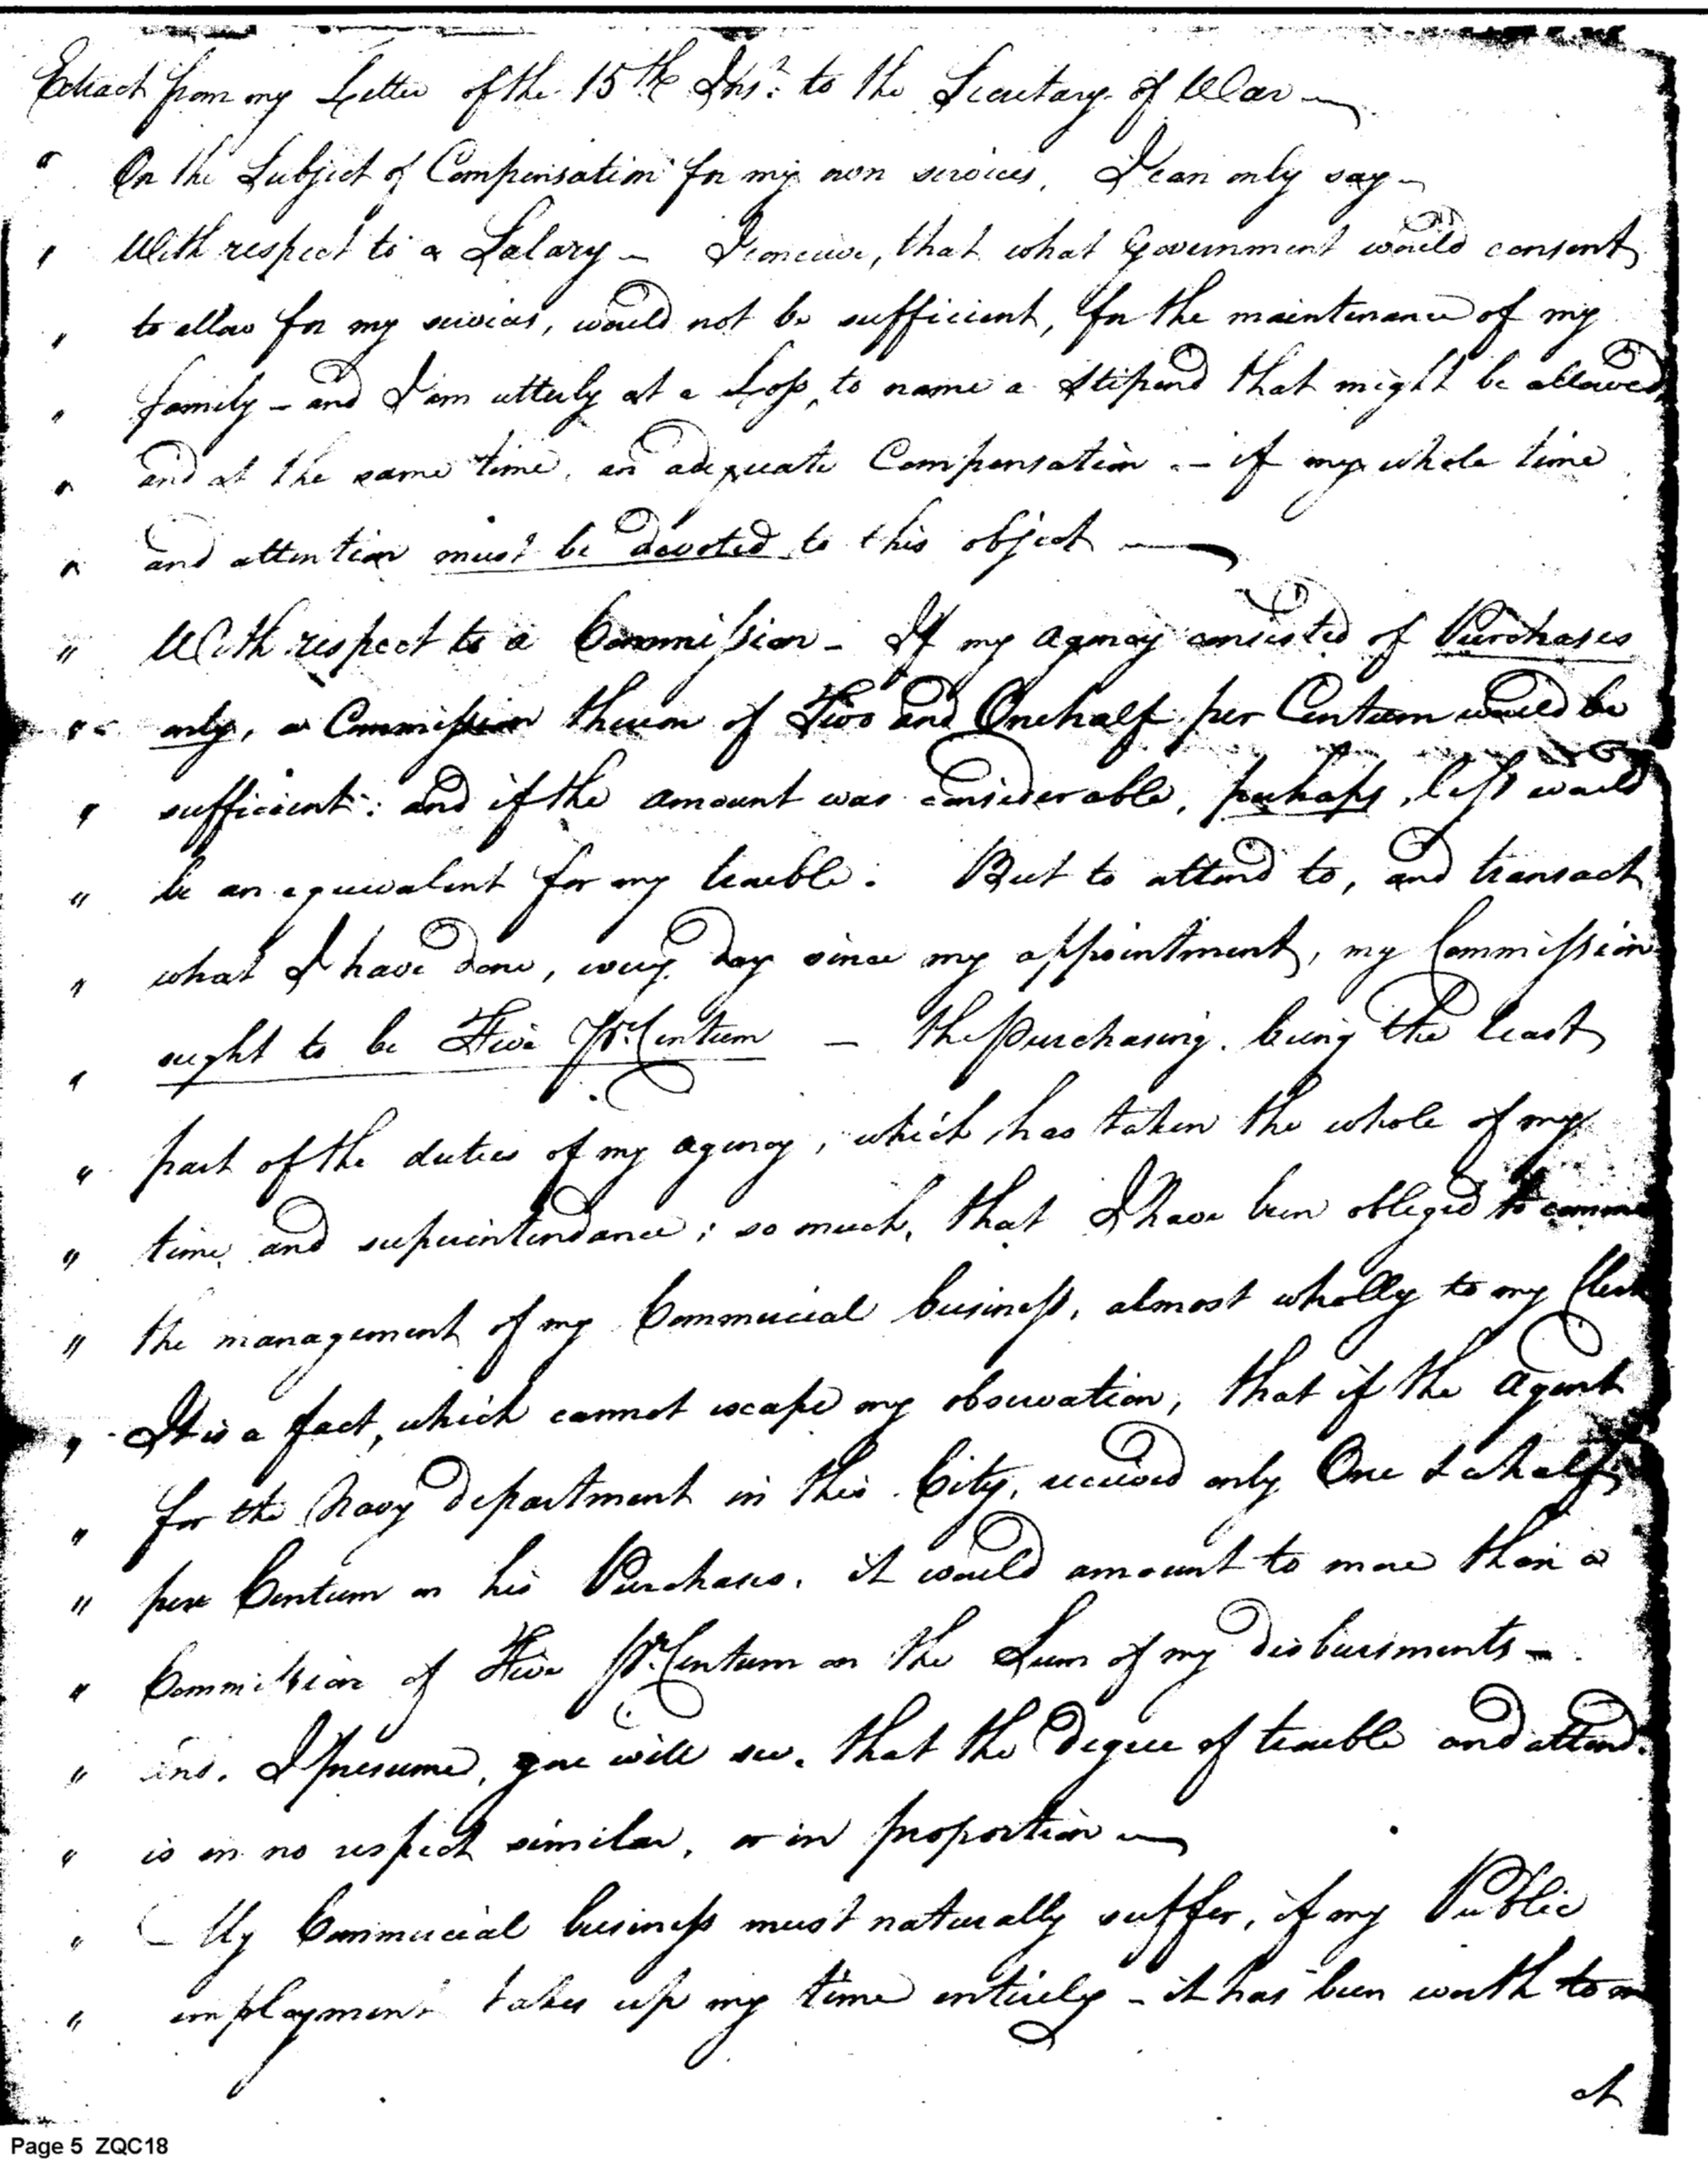 Extract from my Letter of the 15th Inst. to the Secretary of War —
" On the Subject of Compensation for my own services, I can only say —
" With respect to a Salary — I conceive, that what Government would consent
" to allow for my services, would not be sufficient, for the maintenance of my
" family — and I am utterly at a Loss, to name a Stipend that might be allowed,
" and at the same time, an adequate Compensation — if my whole time
" and attention must be devoted to this object —
" With respect to a Commission — If my agency consisted of Purchases
" only, a Commission thereon of Two and One half per Centum would be
" sufficient: and if the amount was considerable, perhaps, less would
" be an equivalent for my trouble. But to attend to, and transact
" what I have done, every day since my appointment, my Commission
" ought to be Five Pr. Centum — the Purchasing being the least
" part of the duties of my agency, which has taken the whole of my
" time, and superintendance; so much, that I have been obliged to
" the management of my Commercial business, almost wholly to my Clerk
" It is a fact, which cannot escape my observation, that if the Agent
" for the Navy department in this City, received only One & a half
" per Centum on his Purchases, it would amount to more than a
" Commission of Five Pr. Centum on the Sum of my disbursements —
" and, I presume, you will see, that the degree of trouble and attend.
" is in no respect similar, or in proportion —
" — My Commercial business must naturally suffer, if my Public
" employment takes up my time entirely — it has been worth to
at
Page 5 ZQC18